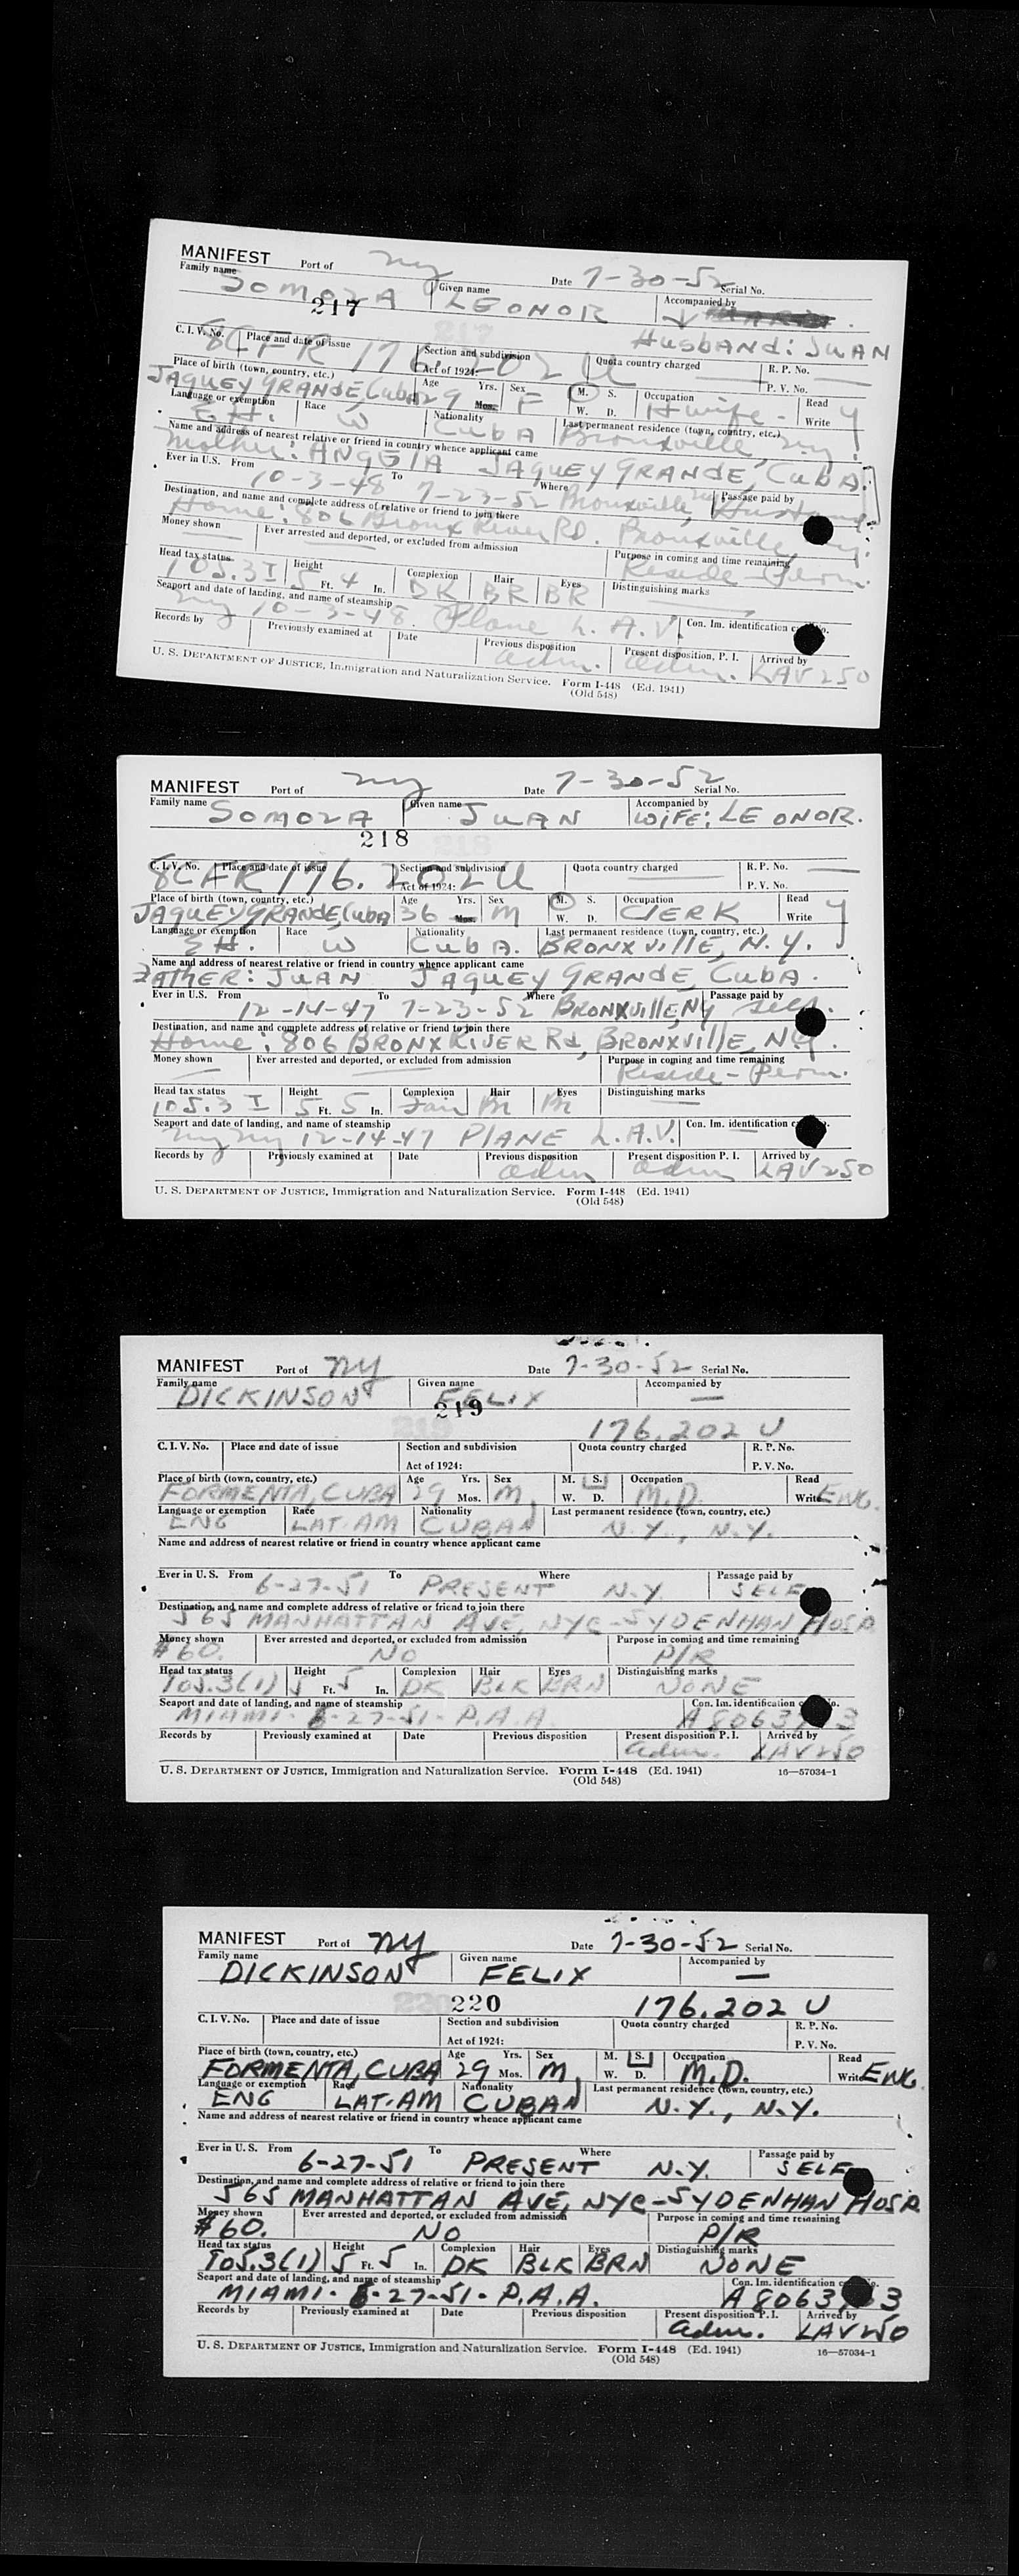 MANIFEST Port of NY Date 7-30-52 Serial No.
Family name SOMOZA Given name LEONOR Accompanied by
217 Husband: JUAN
C. I. V. No. 8CFR Place and date of issue 176.202 U Section and subdivision Quota country charged — R. P. No. —
Act of 1924: P. V. No.
Place of birth (town, country, etc.) Age Yrs. Sex M. S. Occupation Read
JAQUEY GRANDE, Cuba 29 Mos. F W. D. H wife - Write Y
Language or exemption Race Nationality Last permanent residence (town, country, etc.)
W CUBA Bronxville, N.Y.
Name and address of nearest relative or friend in country whence applicant came
Mother: ANGELA JAQUEY GRANDE, CUBA.
Ever in U.S. From To Where Passage paid by
10-3-48 7-23-52 Bronxville, NY Husband
Destination, and name and complete address of relative or friend to join there
Home: 806 Bronx River RD. Bronxville, NY.
Money shown Ever arrested and deported, or excluded from admission Purpose in coming and time remaining
— — Reside - Perm.
Head tax status Height Complexion Hair Eyes Distinguishing marks
105.3 I 5 Ft. 4 In. DK BR BR —
Seaport and date of landing, and name of steamship Con. Im. identification
NY 10-3-48. Plane L.A.V.
Records by Previously examined at Date Previous disposition Present disposition, P. I. Arrived by
adm. adm. LAV 250
U. S. DEPARTMENT OF JUSTICE, Immigration and Naturalization Service. Form I-448 (Ed. 1941)
(Old 548)
MANIFEST Port of NY Date 7-30-52 Serial No.
Family name SOMOZA Given name JUAN Accompanied by WIFE: LEONOR.
218
C. I. V. No. Place and date of issue Section and subdivision Quota country charged R. P. No. —
8CFR 176.202 U Act of 1924: — P. V. No.
Place of birth (town, country, etc.) Age Yrs. Sex M. S. Occupation Read
JAQUEY GRANDE, Cuba 36 Mos. M W. D. CLERK Write Y
Language or exemption Race Nationality Last permanent residence (town, country, etc.)
W CUBA. BRONXVILLE, N.Y.
Name and address of nearest relative or friend in country whence applicant came
FATHER: JUAN JAQUEY GRANDE, CUBA.
Ever in U.S. From To Where Passage paid by
12-14-47 7-23-52 BRONXVILLE, NY self.
Destination, and name and complete address of relative or friend to join there
Home: 806 BRONX RIVER Rd, BRONXVILLE, NY.
Money shown Ever arrested and deported, or excluded from admission Purpose in coming and time remaining
— — Reside - Perm.
Head tax status Height Complexion Hair Eyes Distinguishing marks
105.3 I 5 Ft. 5 In. Fair —
Seaport and date of landing, and name of steamship Con. Im. identification
12-14-47 PLANE L.A.V.
Records by Previously examined at Date Previous disposition Present disposition P. I. Arrived by
adm adm LAV 250
U. S. DEPARTMENT OF JUSTICE, Immigration and Naturalization Service. Form I-448 (Ed. 1941)
(Old 548)
MANIFEST Port of NY Date 7-30-52 Serial No.
Family name DICKINSON Given name FELIX Accompanied by —
219 176.202 U
C. I. V. No. Place and date of issue Section and subdivision Quota country charged R. P. No.
Act of 1924: P. V. No.
Place of birth (town, country, etc.) Age Yrs. Sex M. S. Occupation Read
FORMENTA, CUBA 29 Mos. M W. D. M.D. Write ENG.
Language or exemption Race Nationality Last permanent residence (town, country, etc.)
ENG LAT-AM CUBAN N.Y., N.Y.
Name and address of nearest relative or friend in country whence applicant came
Ever in U.S. From To Where Passage paid by
6-27-51 PRESENT N.Y. SELF
Destination, and name and complete address of relative or friend to join there
565 MANHATTAN AVE, NYC-SYDENHAN HOSP
Money shown Ever arrested and deported, or excluded from admission Purpose in coming and time remaining
$60. NO P/R
Head tax status Height Complexion Hair Eyes Distinguishing marks
105.3(1) 5 Ft. 5 In. DK BLK BRN NONE
Seaport and date of landing, and name of steamship Con. Im. identification
MIAMI - 6-27-51 - P.A.A. A 8063 3
Records by Previously examined at Date Previous disposition Present disposition P. I. Arrived by
adm. LAV 250
U. S. DEPARTMENT OF JUSTICE, Immigration and Naturalization Service. Form I-448 (Ed. 1941) 16—57034-1
(Old 548)
MANIFEST Port of NY Date 7-30-52 Serial No.
Family name DICKINSON Given name FELIX Accompanied by —
220 176.202 U
C. I. V. No. Place and date of issue Section and subdivision Quota country charged R. P. No.
Act of 1924: P. V. No.
Place of birth (town, country, etc.) Age Yrs. Sex M. S. Occupation Read
FORMENTA, CUBA 29 Mos. M W. D. M.D. Write ENG.
Language or exemption Race Nationality Last permanent residence (town, country, etc.)
ENG LAT-AM CUBAN N.Y., N.Y.
Name and address of nearest relative or friend in country whence applicant came
Ever in U.S. From To Where Passage paid by
6-27-51 PRESENT N.Y. SELF
Destination, and name and complete address of relative or friend to join there
565 MANHATTAN AVE, NYC-SYDENHAN HOSP
Money shown Ever arrested and deported, or excluded from admission Purpose in coming and time remaining
$60. NO P/R
Head tax status Height Complexion Hair Eyes Distinguishing marks
105.3(1) 5 Ft. 5 In. DK BLK BRN NONE
Seaport and date of landing, and name of steamship Con. Im. identification
MIAMI - 6-27-51 - P.A.A. A 8063 3
Records by Previously examined at Date Previous disposition Present disposition P. I. Arrived by
adm. LAV 250
U. S. DEPARTMENT OF JUSTICE, Immigration and Naturalization Service. Form I-448 (Ed. 1941) 16—57034-1
(Old 548)